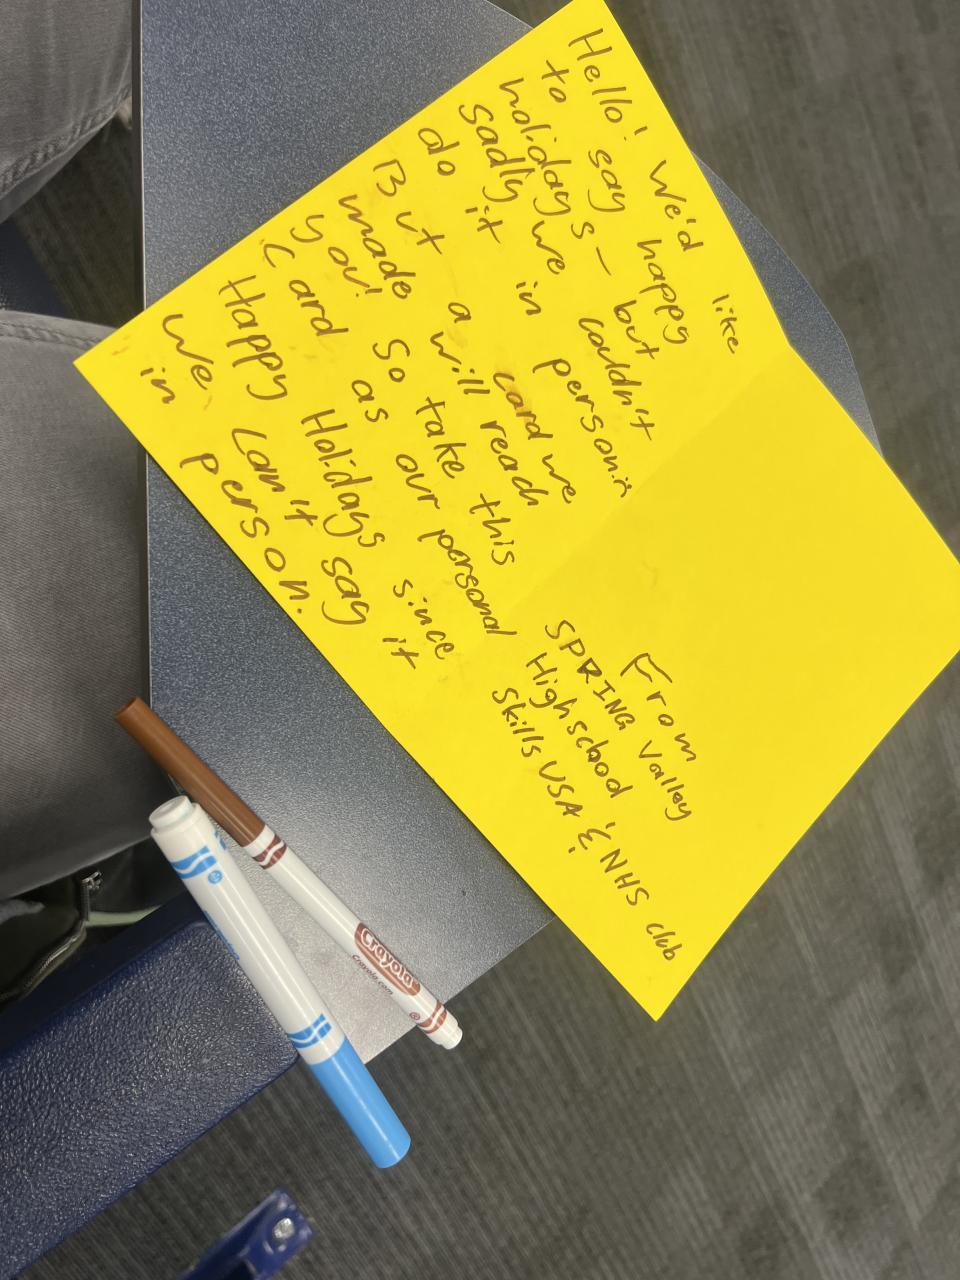 Hello! We'd like
to say happy
holidays - but
sadly we couldn't
do it in person :(
But a card we
made will reach
you! So take this
card as our personal
Happy Holidays since
We can't say it
in person.
From
SPRING Valley
High school
Skills USA & NHS club
Crayola
Crayola.com